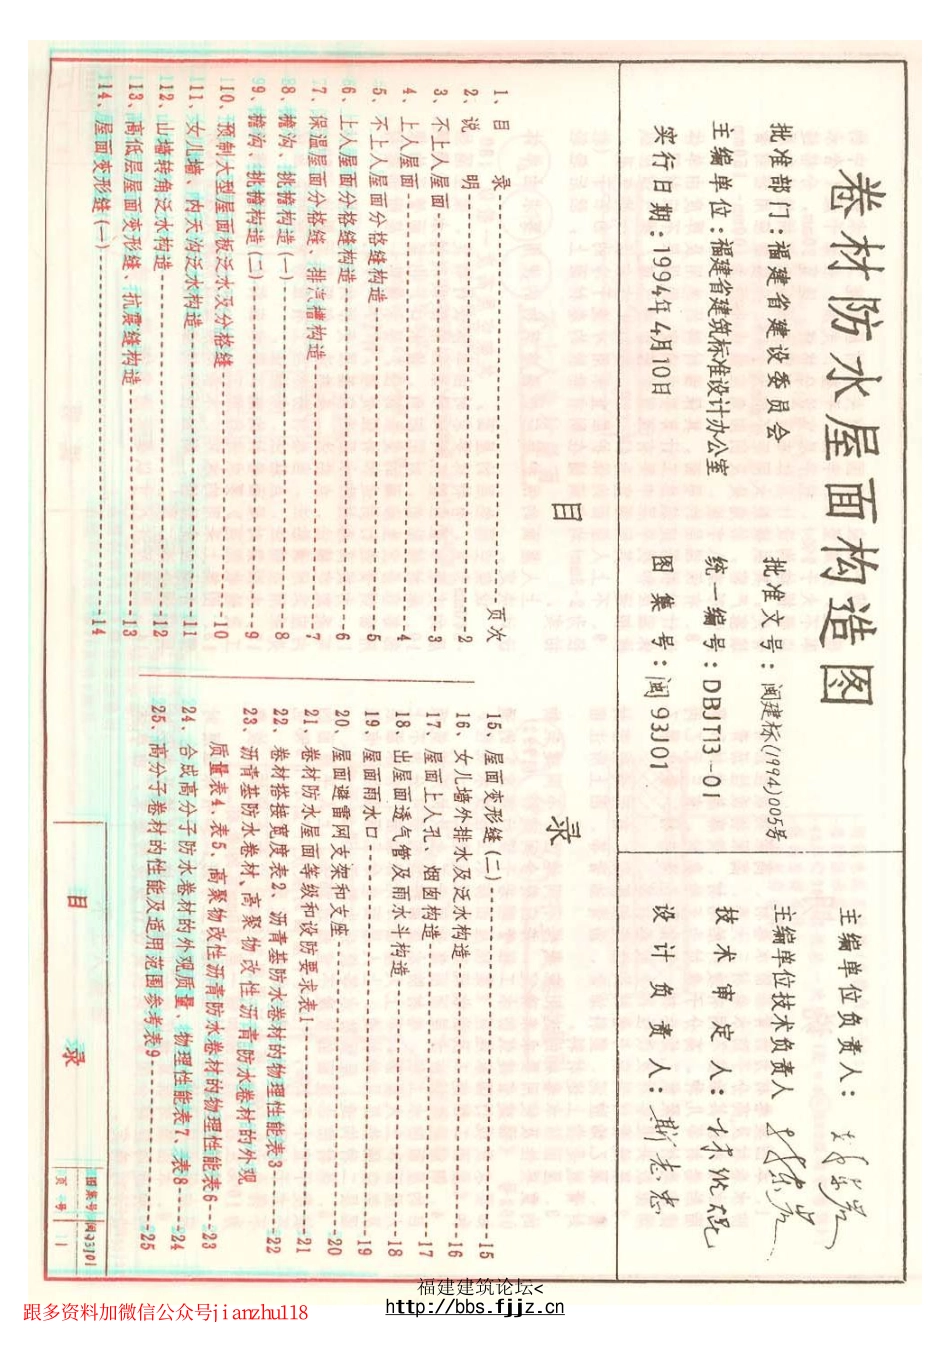 卷材防水屋面构造图
批准部门：福建省建设委员会
主编单位：福建省建筑标准设计办公室
实行日期：1994年4月10日
批准文号：闽建标(1994)005号
统一编号：DBJT13-01
图集号：闽93J01
主编单位负责人：
主编单位技术负责人
技术审定人：
设计负责人：
目 录
页次
1、目 录
2、说 明------2
3、不上人屋面------3
4、上人屋面------4
5、不上人屋面分格缝构造------5
6、上人屋面分格缝构造------6
7、保温屋面分格缝、排汽槽构造------7
8、檐沟、挑檐构造(一)------8
9、檐沟、挑檐构造(二)------9
10、预制大型屋面板泛水及分格缝------10
11、女儿墙、内天沟泛水构造------11
12、山墙转角泛水构造------12
13、高低层屋面变形缝、抗震缝构造------13
14、屋面变形缝(一)------14
15、屋面变形缝(二)------15
16、女儿墙外排水及泛水构造------16
17、屋面上人孔、烟囱构造------17
18、出屋面透气管及雨水斗构造------18
19、屋面雨水口------19
20、屋面避雷网支架和支座------20
21、卷材防水屋面等级和设防要求表1------21
22、卷材搭接宽度表2、沥青基防水卷材的物理性能表3------22
23、沥青基防水卷材、高聚物改性沥青防水卷材的外观
质量表4、表5、高聚物改性沥青防水卷材的物理性能表6------23
24、合成高分子防水卷材的外观质量、物理性能表7、表8------24
25、高分子卷材的性能及适用范围参考表9------25
目 录
图集号 闽93J01
页 号 1
福建建筑论坛<
http://bbs.fjjz.cn
跟多资料加微信公众号jianzhu118